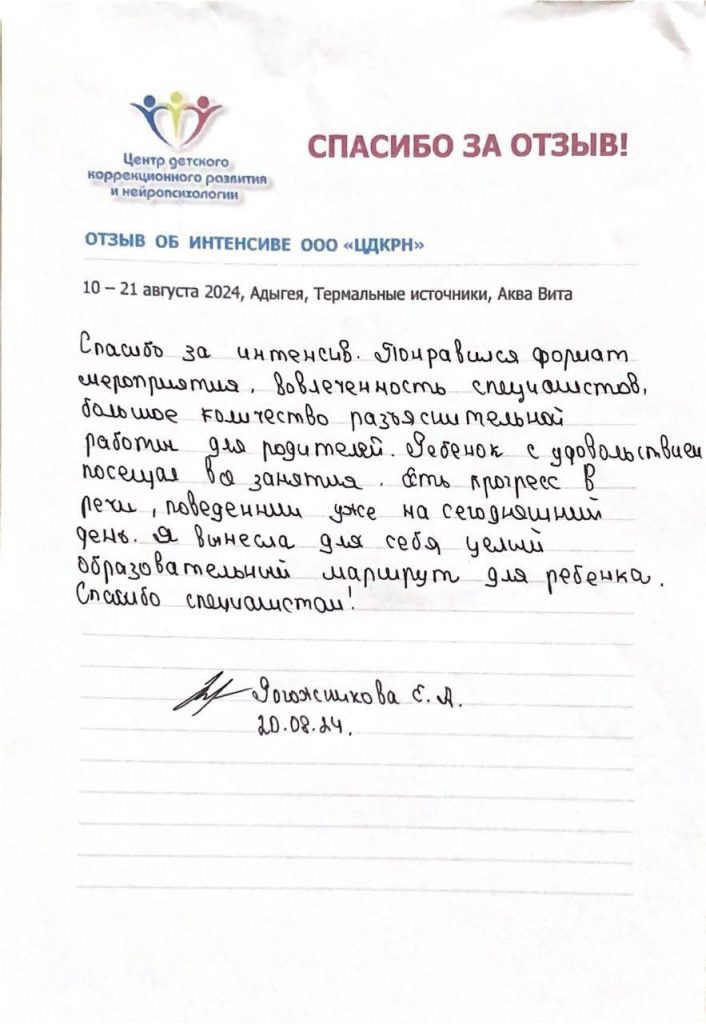 Центр детского
коррекционного развития
и нейропсихологии
СПАСИБО ЗА ОТЗЫВ!
ОТЗЫВ ОБ ИНТЕНСИВЕ ООО «ЦДКРН»
10 – 21 августа 2024, Адыгея, Термальные источники, Аква Вита
Спасибо за интенсив. Понравился формат
мероприятия, вовлеченность специалистов,
большое количество разъяснительной
работы для родителей. Ребенок с удовольствием
посещал все занятия. Есть прогресс в
речи, поведении уже на сегодняшний
день. Я вынесла для себя целый
образовательный маршрут для ребенка.
Спасибо специалистам!
Е. А.
20.08.24.